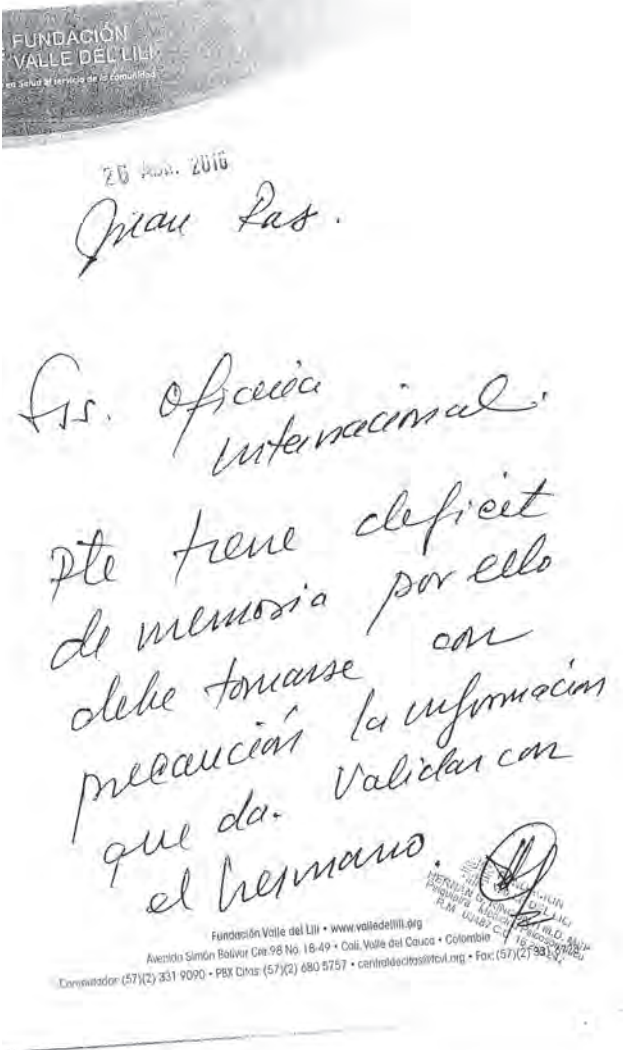 FUNDACIÓN
VALLE DEL LILI
en Salud al servicio de la comunidad
26 2016
Juan Pas.
Srs. Oficina
internacional.
Pte tiene deficit
de memoria por ello
debe tomarse con
precaución la información
que da. Validar con
el hermano.
Fundación Valle del Lili • www.valledellili.org
Avenida Simón Bolívar Cra 98 No. 18-49 • Cali, Valle del Cauca • Colombia
Conmutador: (57)(2) 331 9090 • PBX Citas: (57)(2) 680 5757 • centraldecitas@fcvl.org • Fax: (57)(2) 331